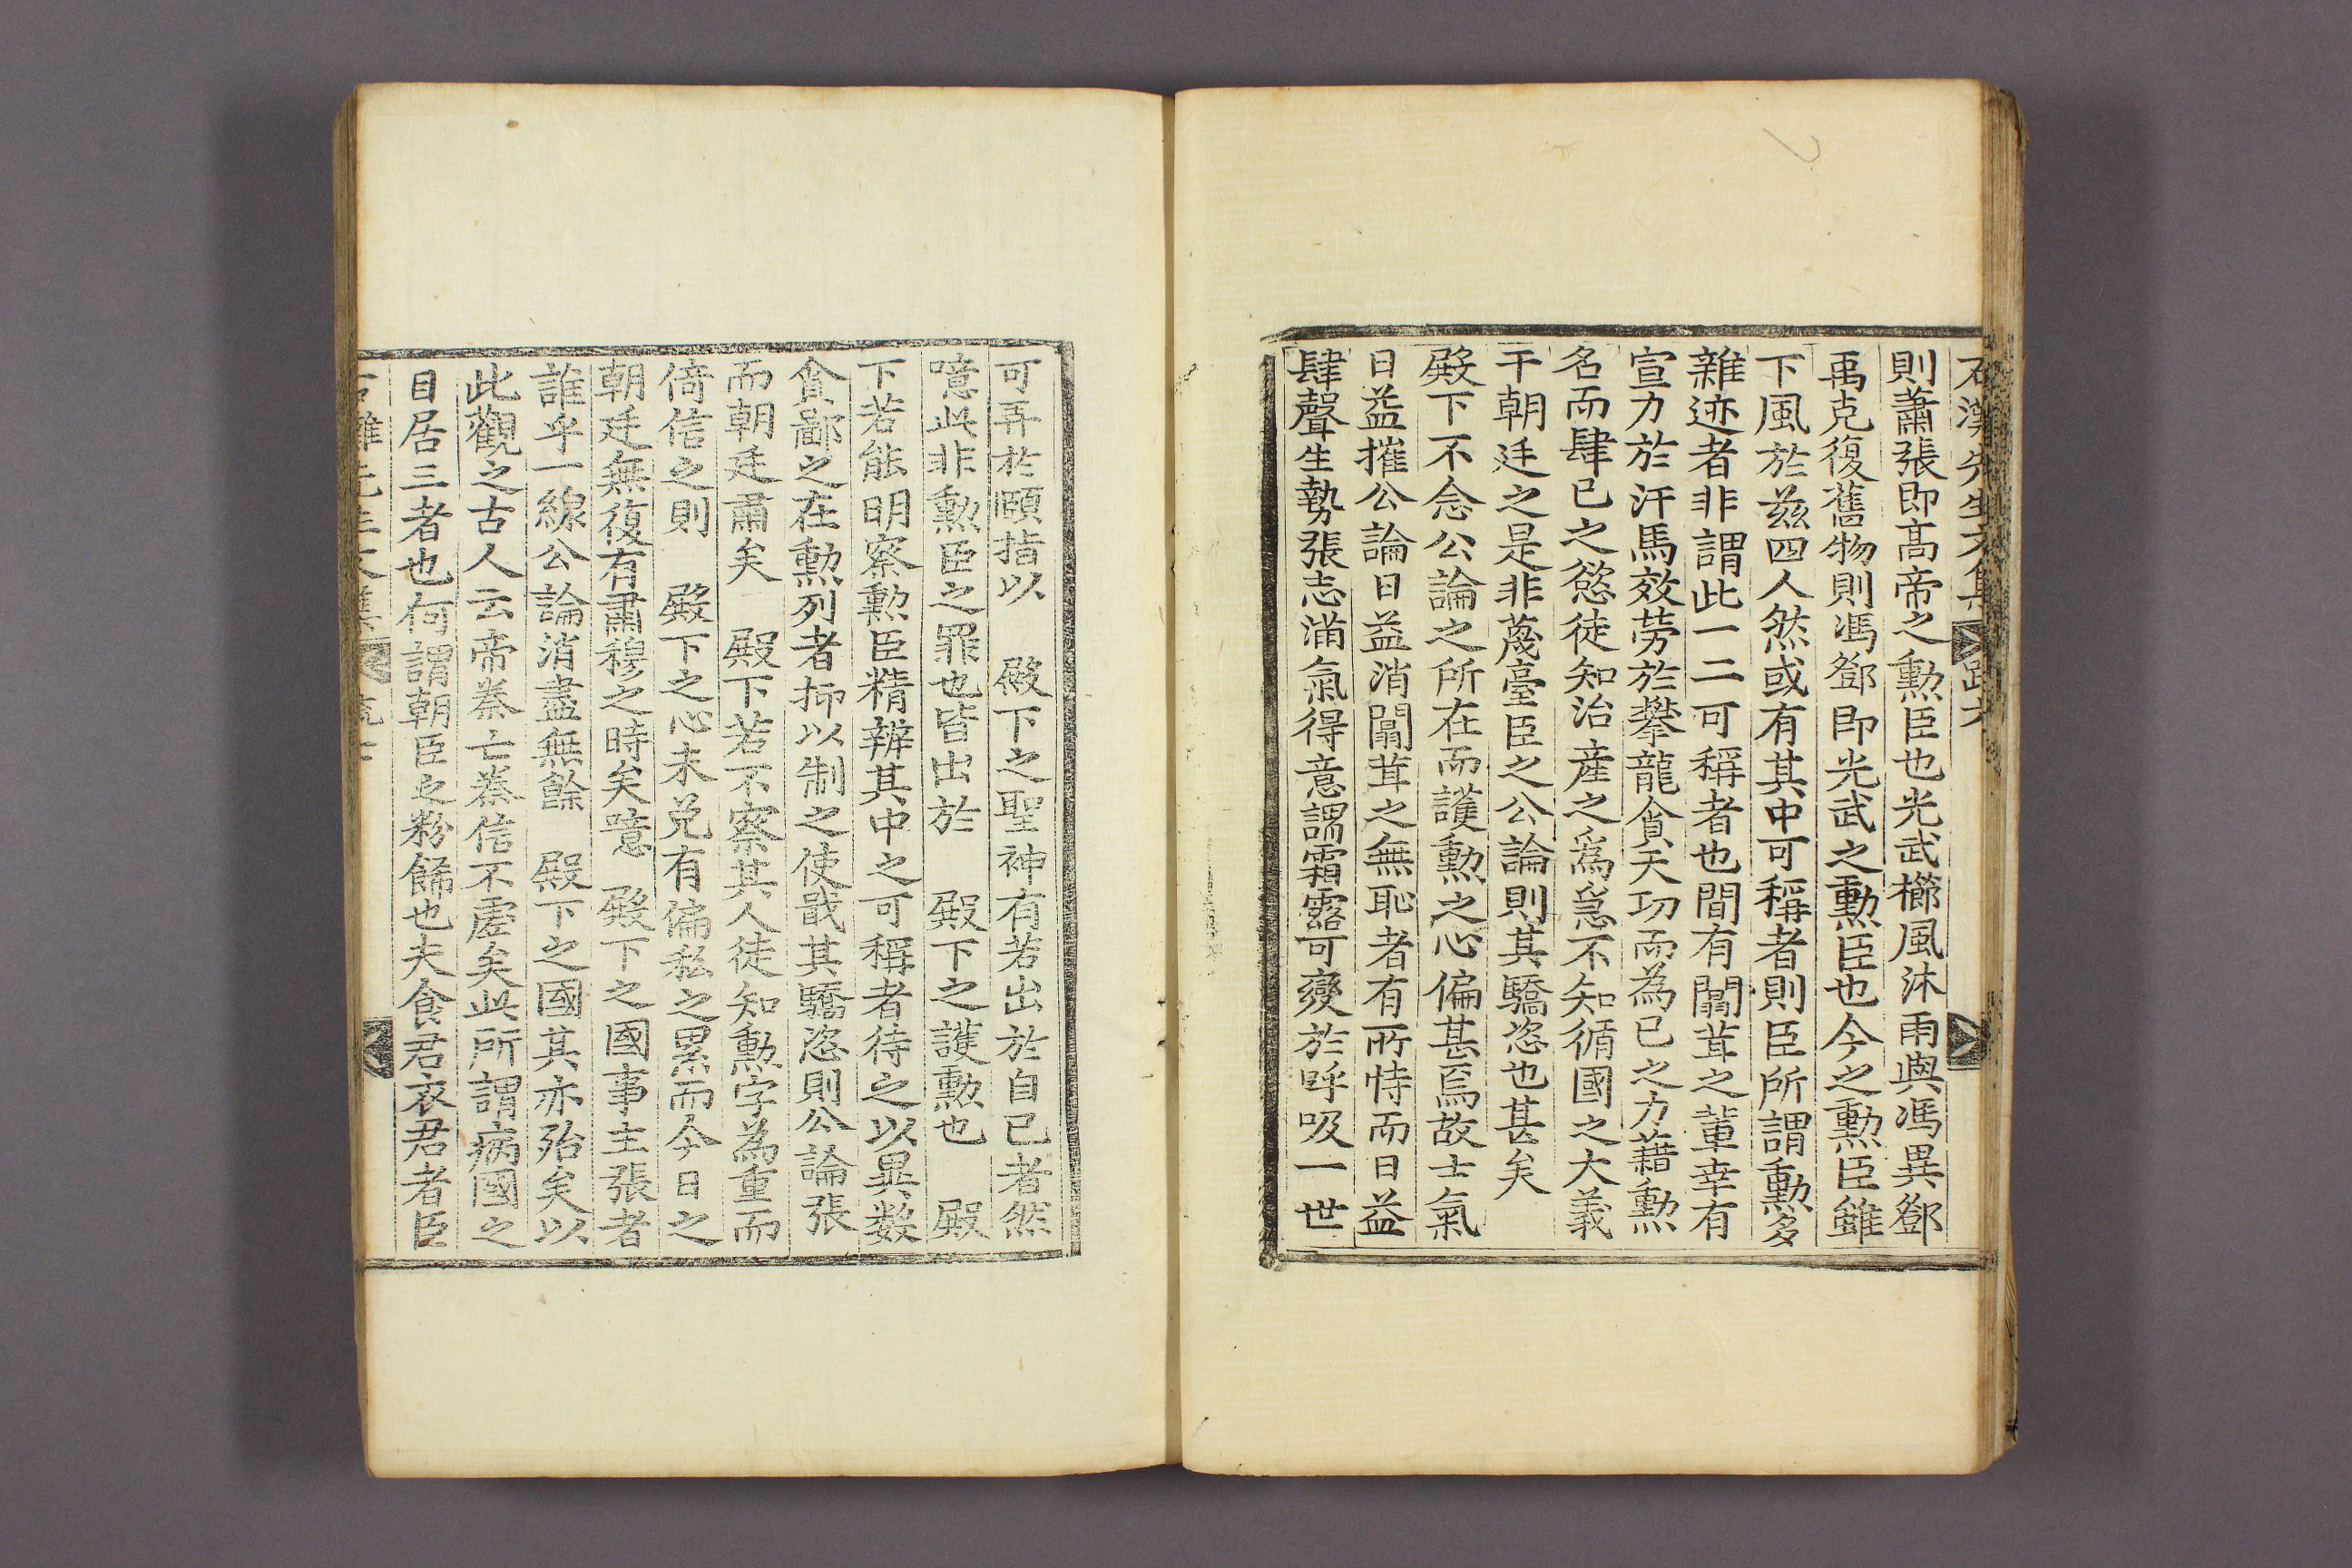 石溪先生文集 疏六
則蕭張即高帝之勳臣也光武櫛風沐雨與馮異鄧
禹克復舊物則馮鄧即光武之勳臣也今之勳臣雖
下風於玆四人然或有其中可稱者則臣所謂勳多
雜迹者非謂此一二可稱者也間有闒茸之輩幸有
宣力於汗馬效劳於攀龍貪天功而為已之力藉勳
名而肆已之慾徒知治産之爲急不知循國之大義
干朝廷之是非蔑臺臣之公論則其驕恣也甚矣
殿下不念公論之所在而護勳之心偏甚焉故士氣
日益摧公論日益消闒茸之無恥者有所恃而日益
肆聲生勢張志滿氣得意謂霜露可變於呼吸一世
可弄於頤指以 殿下之聖神有若出於自已者然
噫此非勳臣之罪也皆出於 殿下之護勳也 殿
下若能明察勳臣精辨其中之可稱者待之以異数
貪鄙之在勳列者抑以制之使戢其驕恣則公論張
而朝廷肅矣 殿下若不察其人徒知勳字為重而
倚信之則 殿下之心未免有偏私之累而今日之
朝廷無復有肅穆之時矣噫 殿下之國事主張者
誰乎一線公論消盡無餘 殿下之國其亦殆矣以
此觀之古人云帝秦亡秦信不虛矣此所謂病國之
目居三者也何謂朝臣之粉餙也夫食君衣君者臣